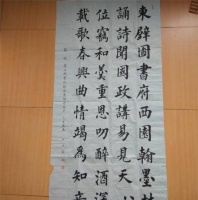 東壁圖書府西園翰墨林
誦詩聞國政講易見天心
位竊和羹重恩叨醉酒深
載歌春興曲情竭為知音